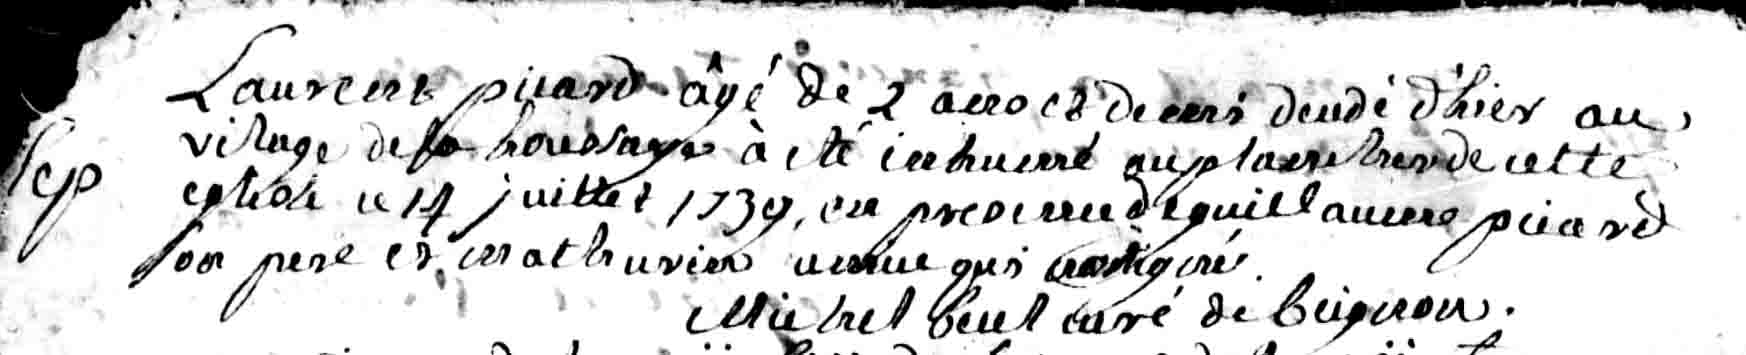 Laurent picard âgé de 2 ans et demi deudé d'hier au
vilage de la houssaye à été inhumé au placitre de cette
Sep
eglise le 14 juillet 1739, en presence de guillaume picard
son pere et mathurin qui ont signé.
Michel curé de beignon.